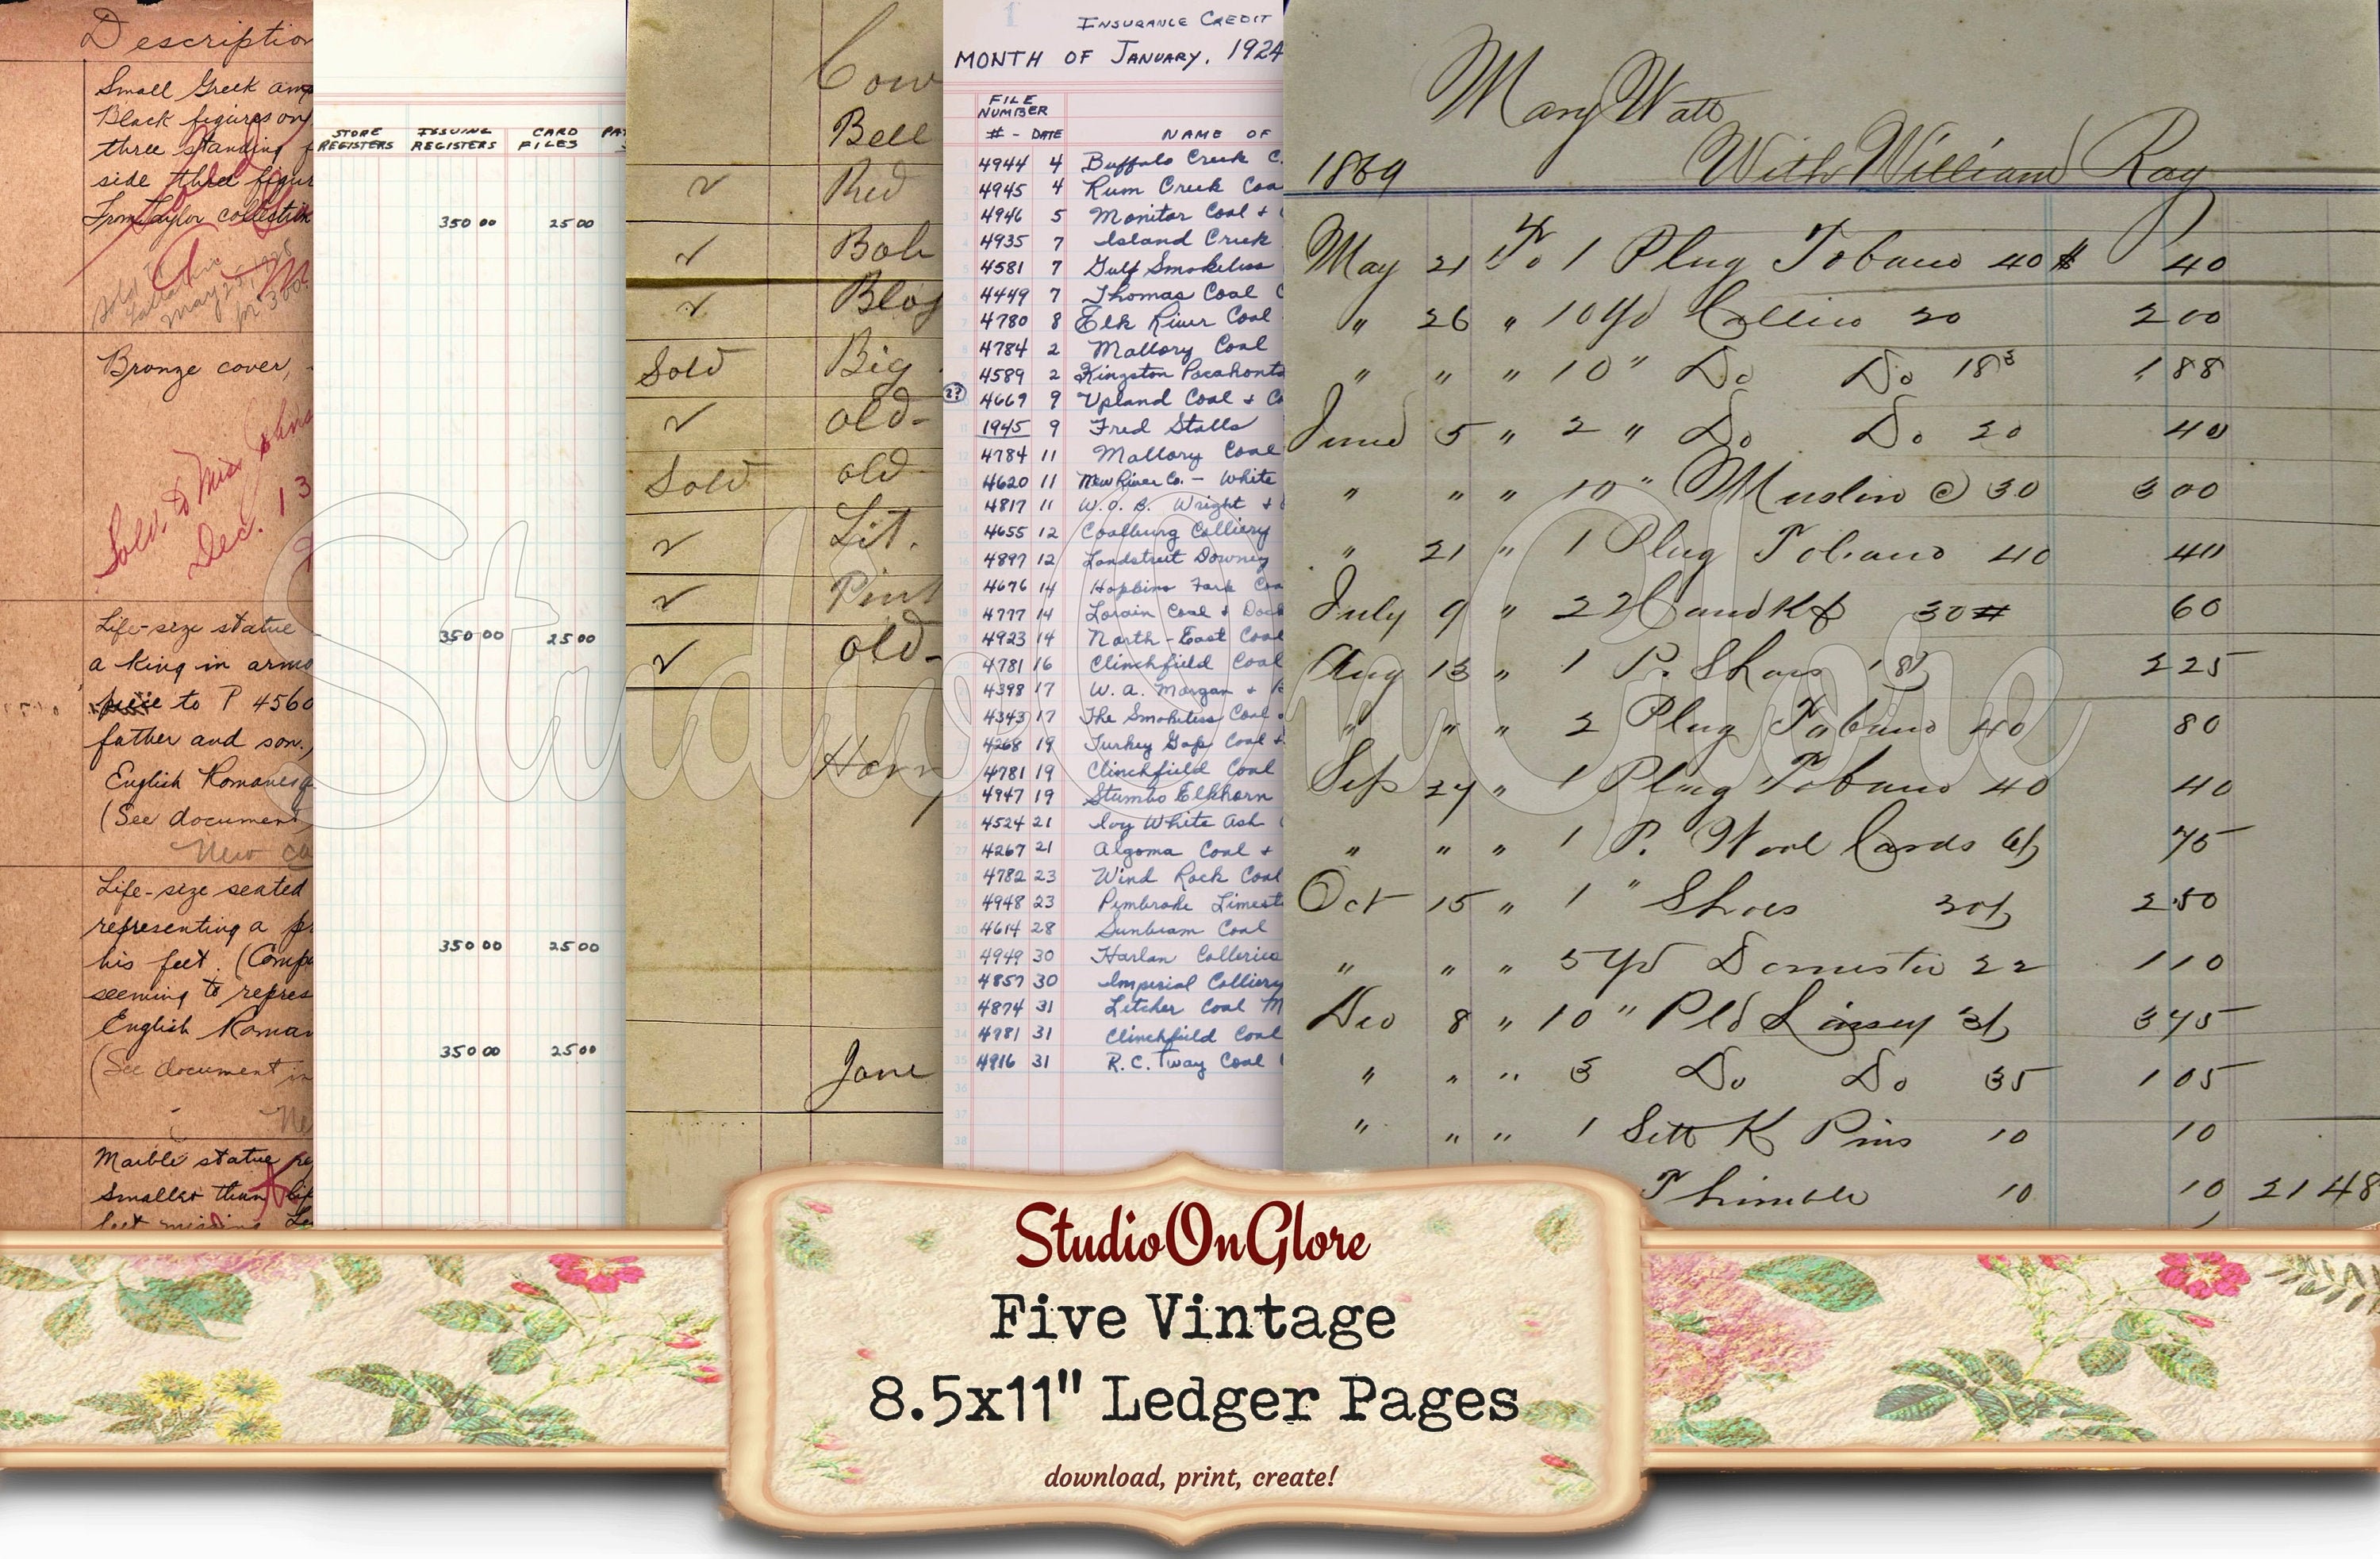 Description
Small Greek
Black figures on
three standing
side three
From Taylor collection
Bronze cover,
Sold to Miss
Dec. 13
Life-size statue
a king in
to P 4560
father and son.
English
(See document
New
Life-size seated
representing a
his feet.
seeming to
English
(See document in
Marble statue
Smaller than
STORE REGISTERS ISSUING REGISTERS CARD FILES
350 00 25 00
350 00 25 00
350 00 25 00
350 00 25 00
Cow
Bell
✓ Red
✓ Bob
✓
Sold Big
✓ old-
Sold old
✓ Lit.
✓
✓ old-
Jane
1
INSURANCE CREDIT
MONTH OF JANUARY, 1924
FILE NUMBER
# - DATE NAME OF
4944 4 Buffalo Creek C.
4945 4 Rum Creek Coa
4946 5 Monitor Coal +
4935 7 Island Creek
4581 7 Gulf Smokeless
4449 7 Thomas Coal C
4780 8 Elk River Coal
4784 2 Mallory Coal
4589 2 Kingston Pocahonta
4669 9 Upland Coal + Co
1945 9 Fred Stalls
4784 11 Mallory Coal
4620 11 New River Co. - White
4817 11 W.O.B. Wright +
4655 12 Coalburg Colliery
4897 12 Landstreet Downey
4676 14 Hopkins Fork Coa
4777 14 Lorain Coal + Dock
4923 14 North-East Coal
4781 16 Clinchfield Coal
4398 17 W. A. Morgan +
4343 17 The Smokeless Coal
4268 19 Turkey Gap Coal +
4781 19 Clinchfield Coal
4947 19 Stumbo Elkhorn
4524 21 Ivy White Ash
4267 21 Algoma Coal +
4782 23 Wind Rock Coal
4948 23 Pembroke Limest
4614 28 Sunbeam Coal
4949 30 Harlan Collieries
4857 30 Imperial Colliery
4874 31 Letcher Coal M
4981 31 Clinchfield Coal
4916 31 R.C. Tway Coal
Mary Watt
1869 With William Ray
May 21 To 1 Plug Tobacco 40 $ 40
" 26 " 10 yd Callico 20 200
" " " 10 " Do Do 18 188
June 5 " 2 " Do Do 20 40
" " " 10 " Muslin @ 30 300
" 21 " 1 Plug Tobacco 40 40
July 9 " 2 Handkf 30 60
Aug 13 " 1 P. Shoes 225
" " " 2 Plug Tobacco 40 80
Sep 27 " 1 Plug Tobacco 40 40
" " " 1 P. Wool Cards 75
Oct 15 " 1 " Shoes 250
" " " 5 yd Domestic 22 110
Dec 8 " 10 " Pld Linsey 375
" " " 3 Do Do 35 105
" " " 1 Sett K Pins 10 10
Thimble 10 10 21 48
StudioOnGlore
StudioOnGlore
Five Vintage
8.5x11" Ledger Pages
download, print, create!